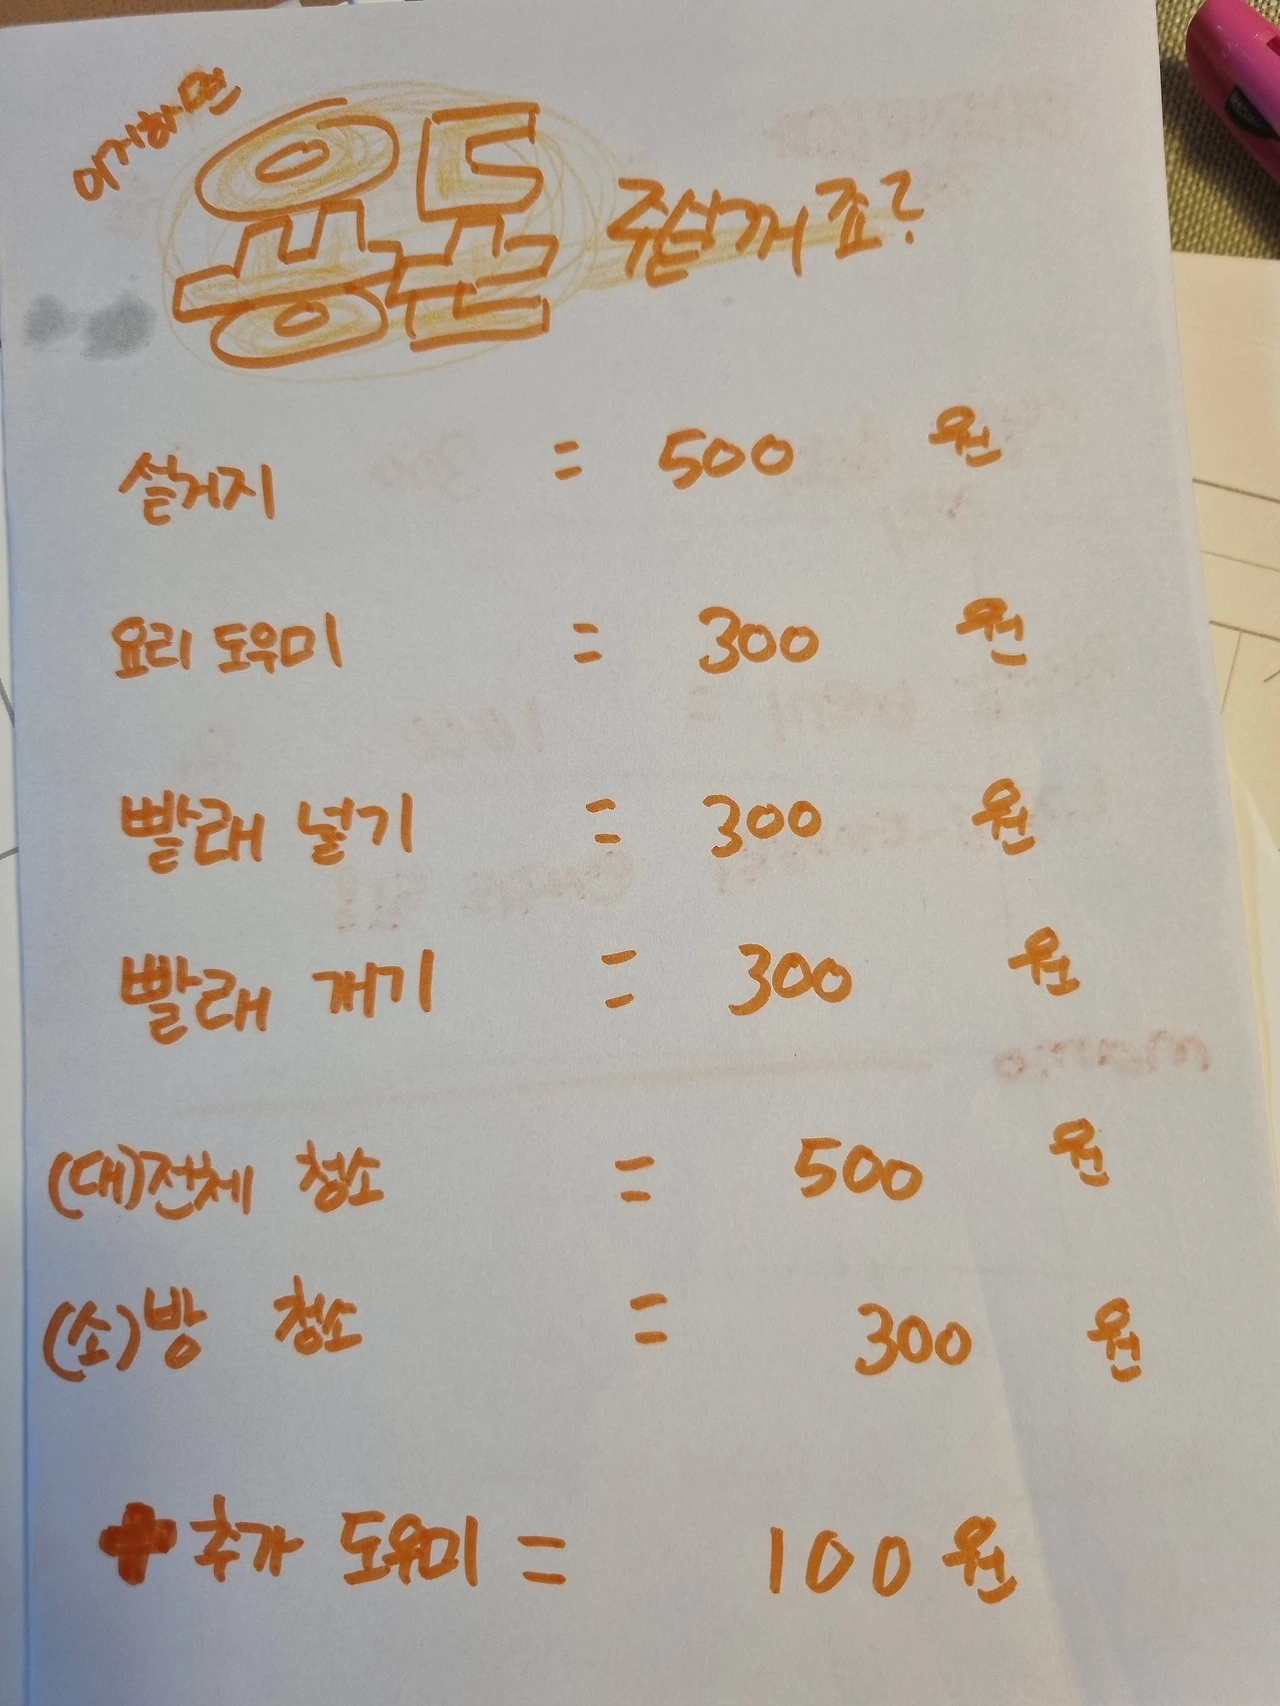 이거하면
용돈 주실꺼죠?
설거지 = 500 원
요리 도우미 = 300 원
빨래 널기 = 300 원
빨래 개기 = 300 원
(대)전체 청소 = 500 원
(소)방 청소 = 300 원
+추가 도우미 = 100 원